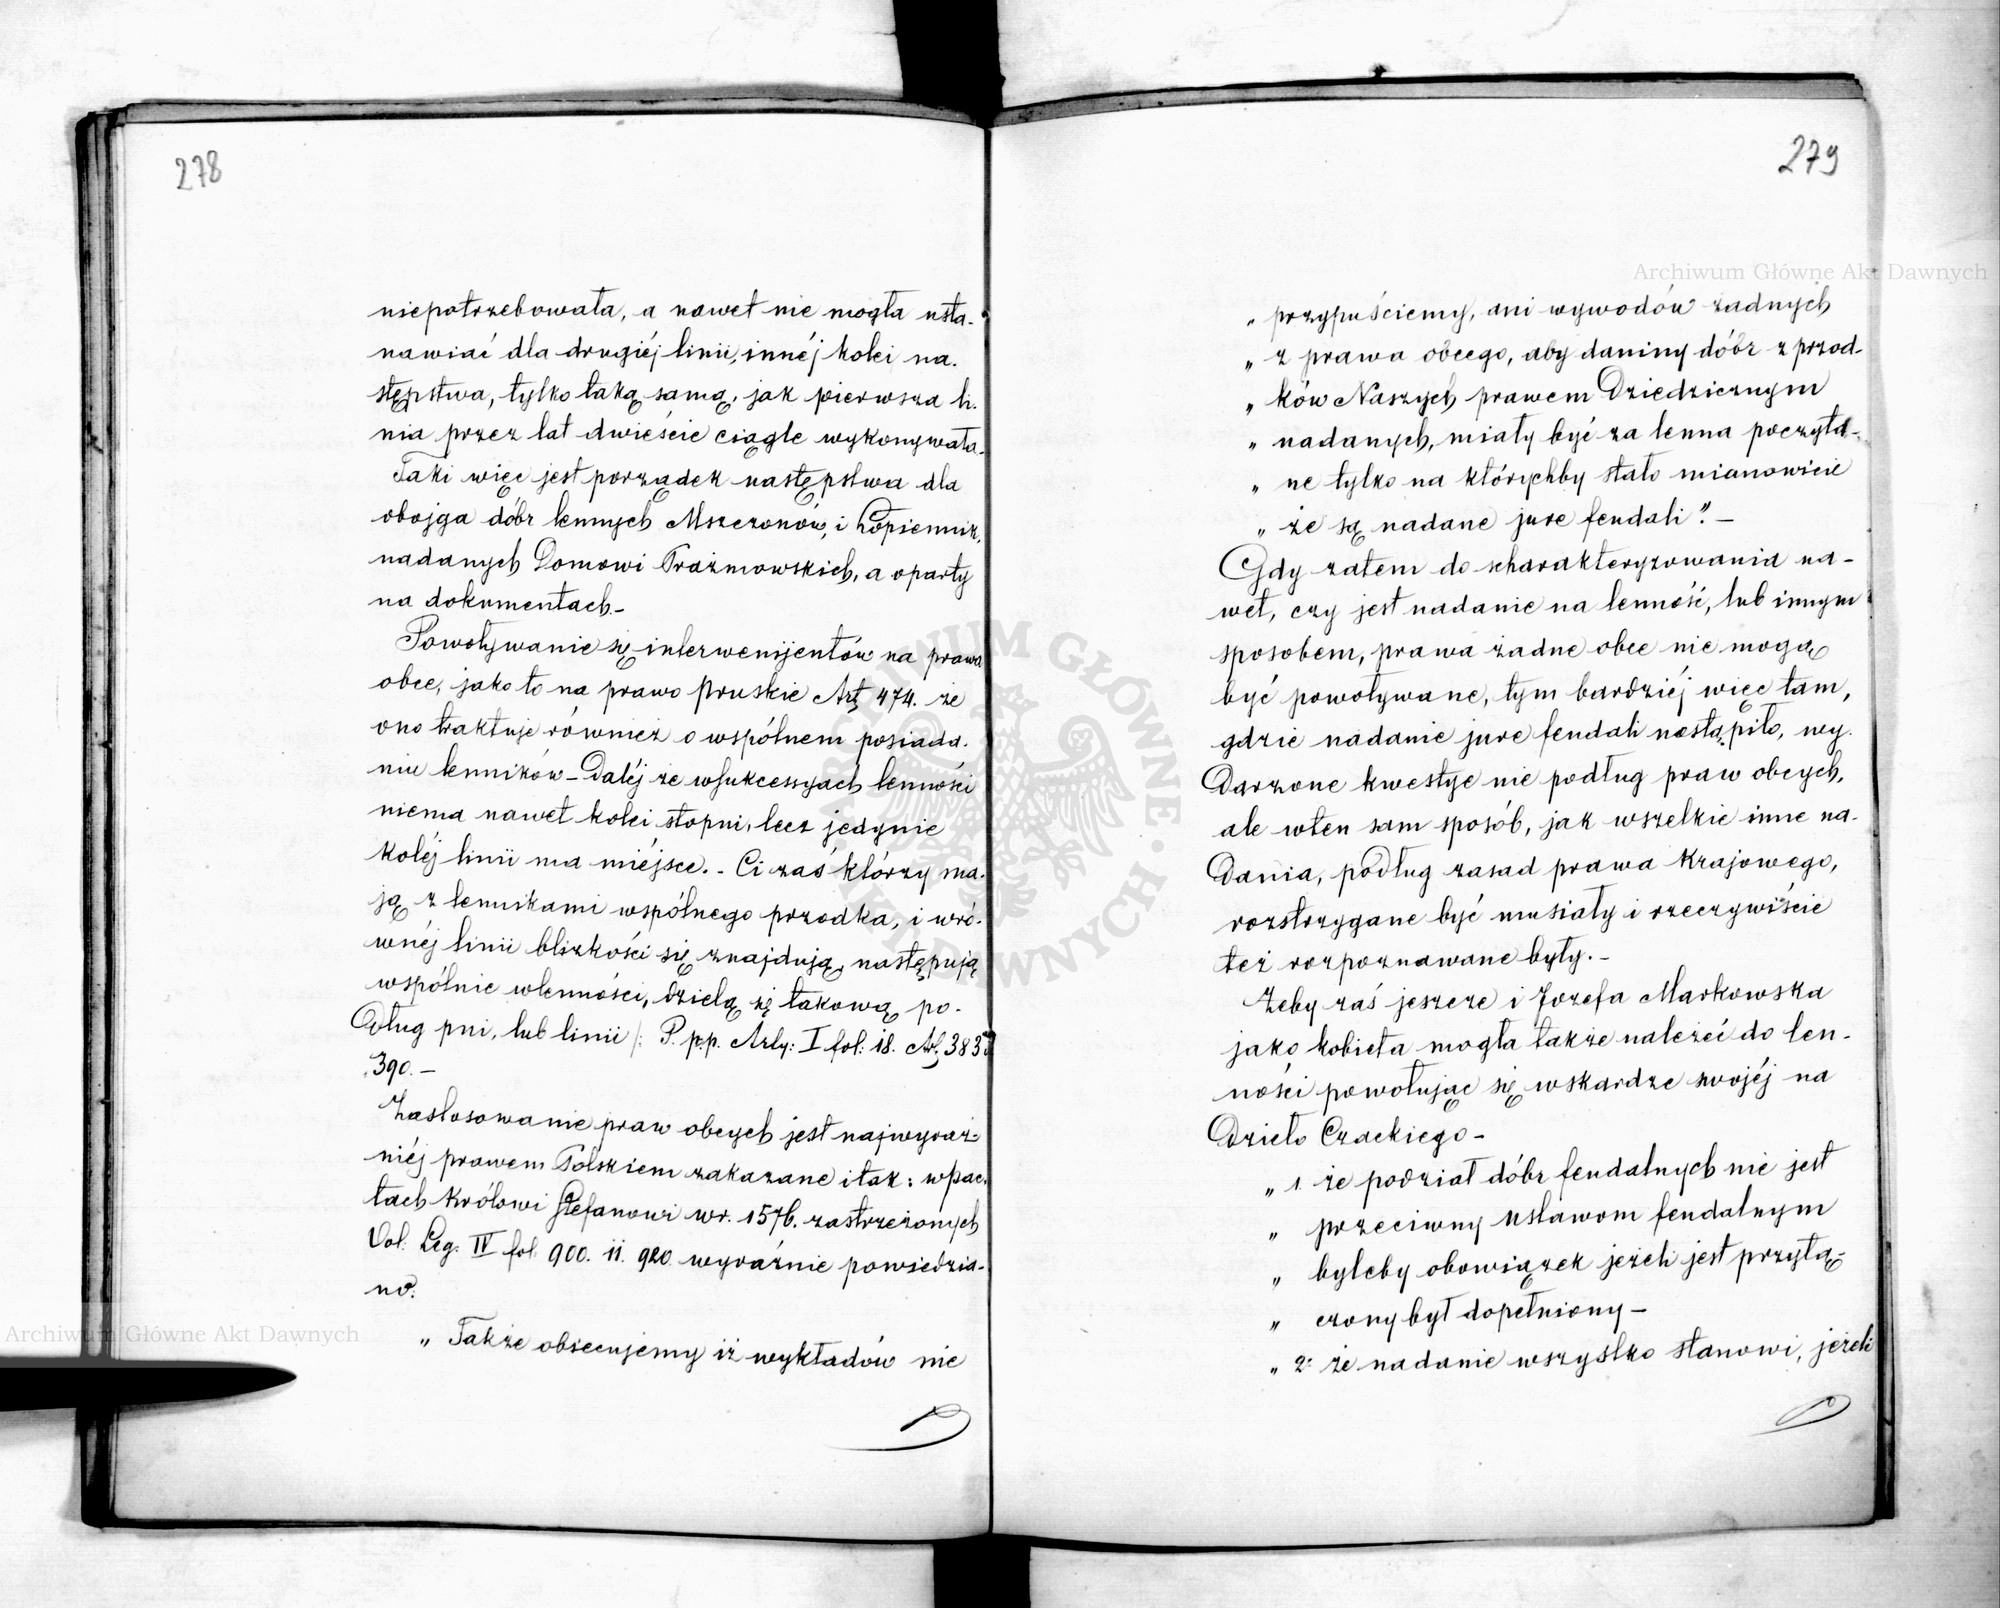 278
niepotrzebowała, a nawet nie mogła usta-
nawiać dla drugiéj linii, innéj kolei na.
stępstwa, tylko taką samą, jak pierwsza li.
nia przez lat dwieście ciągle wykonywała.
Taki więc jest porządek następstwa dla
obojga dóbr lennych Mszczonów, i Łopiennik,
nadanych Domowi Prażmowskich, a oparty
na dokumentach.-
Powoływanie się interwenijentów na prawa
obce, jako to na prawo pruskie Art 474. że
ono traktuje również o wspólnem posiada.
niu lenników - Daléj że wsukcessyach lenności
niema nawet kolei stopni, lecz jedynie
koléj linii ma miéjsce. - Ci zaś którzy ma.
ją z lennikami wspólnego przodka, i wró-
wnéj linii blizkości się znajdują, następują
wspólnie wlenności, dzielą się takową po-
dług pni, lub linii /: P. p.p. Arty: I fol: 18. Art, 383
390. -
Zastosowanie praw obcych jest najwyraź=
niéj prawem Polskiem zakazane i tak: wpac-
tach Królowi Stefanowi wr. 1576. zastrzeżonych
Vol. Leg. IV fol 900. ii. 920. wyraźnie powiedzia-
no:
„ Także obiecujemy iż wykładów nie
279
„ przypuściemy, ani wywodów żadnych
„ z prawa obcego, aby daniny dóbr z przod-
„ ków Naszych prawem Dziedzicznym
„ nadanych, miały być za lenna poczyta-
„ ne tylko na którychby stało mianowicie
„ że są nadane jure feudali". -
Gdy zatem do scharakteryzowania na-
wet, czy jest nadanie na lenność, lub innym
sposobem, prawa żadne obce nie mogą
być powoływane, tym bardziéj więc tam,
gdzie nadanie jure feudali nastąpiło, wy.
darzone kwestye nie podług praw obcych,
ale wten sam sposób, jak wszelkie inne na-
dania, podług zasad prawa Krajowego,
rozstrzygane być musiały i rzeczywiście
też rozpoznawane były. -
Żeby zaś jeszcze i Jozefa Markowska
jako kobieta mogła także należeć do len-
ności powołując się wskardze swojéj na
Dzieło Czackiego -
„ 1 że podział dóbr feudalnych nie jest
„ przeciwny ustawom feudalnym
„ byleby obowiązek jeżeli jest przyłą=
„ czony był dopełniony -
„ 2: że nadanie wszystko stanowi, jeżeli
Archiwum Główne Akt Dawnych
Archiwum Główne Akt Dawnych
ARCHIWUM GŁÓWNE · AKT DAWNYCH ·